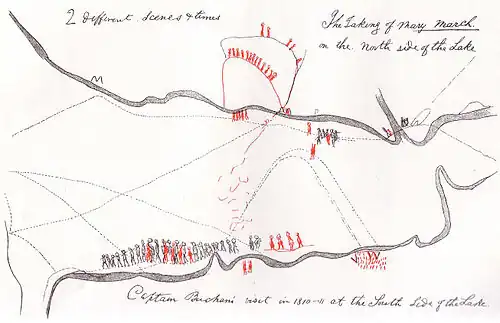 2 different scenes & times
The Taking of Mary March
on the North side of the Lake
Captain Buchan's visit in 1810-11 at the South side of the Lake